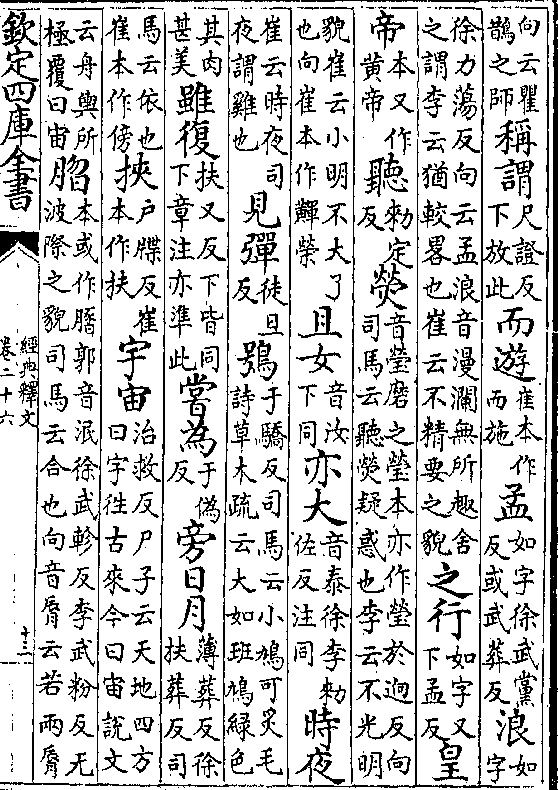 向云瞿鵲之師稱謂尺證反下放此而遊崔本作而施孟如字徐武黨反或武葬反浪如字
徐力蕩反向云孟浪音漫瀾無所趣舍之謂李云猶較畧也崔云不精要之貌之行如字又下孟反皇
帝本又作黄帝聽勑定反熒音瑩磨之瑩本亦作瑩於迥反向司馬云聽熒疑惑也李云不光明
貌崔云小明不大了也向崔本作榮且女音汝下同亦大音泰徐李勑佐反注同時夜
崔云時夜司夜謂雞也見彈徒旦反鴞于驕反司馬云小鳩可炙毛詩草木疏云大如班鳩緑色
其肉甚美雖復扶又反下皆同下章注亦準此嘗為于偽反旁日月薄葬反徐扶葬反司
馬云依也崔本作傍挾户牒反崔本作扶宇宙治救反尸子云天地四方曰宇徃古來今曰宙說文
云舟輿所極覆曰宙本或作郭音泯徐武軫反李武粉反无波際之貌司馬云合也向音脣云若兩脣
欽定四庫全書
經典釋文
卷二十六
十三